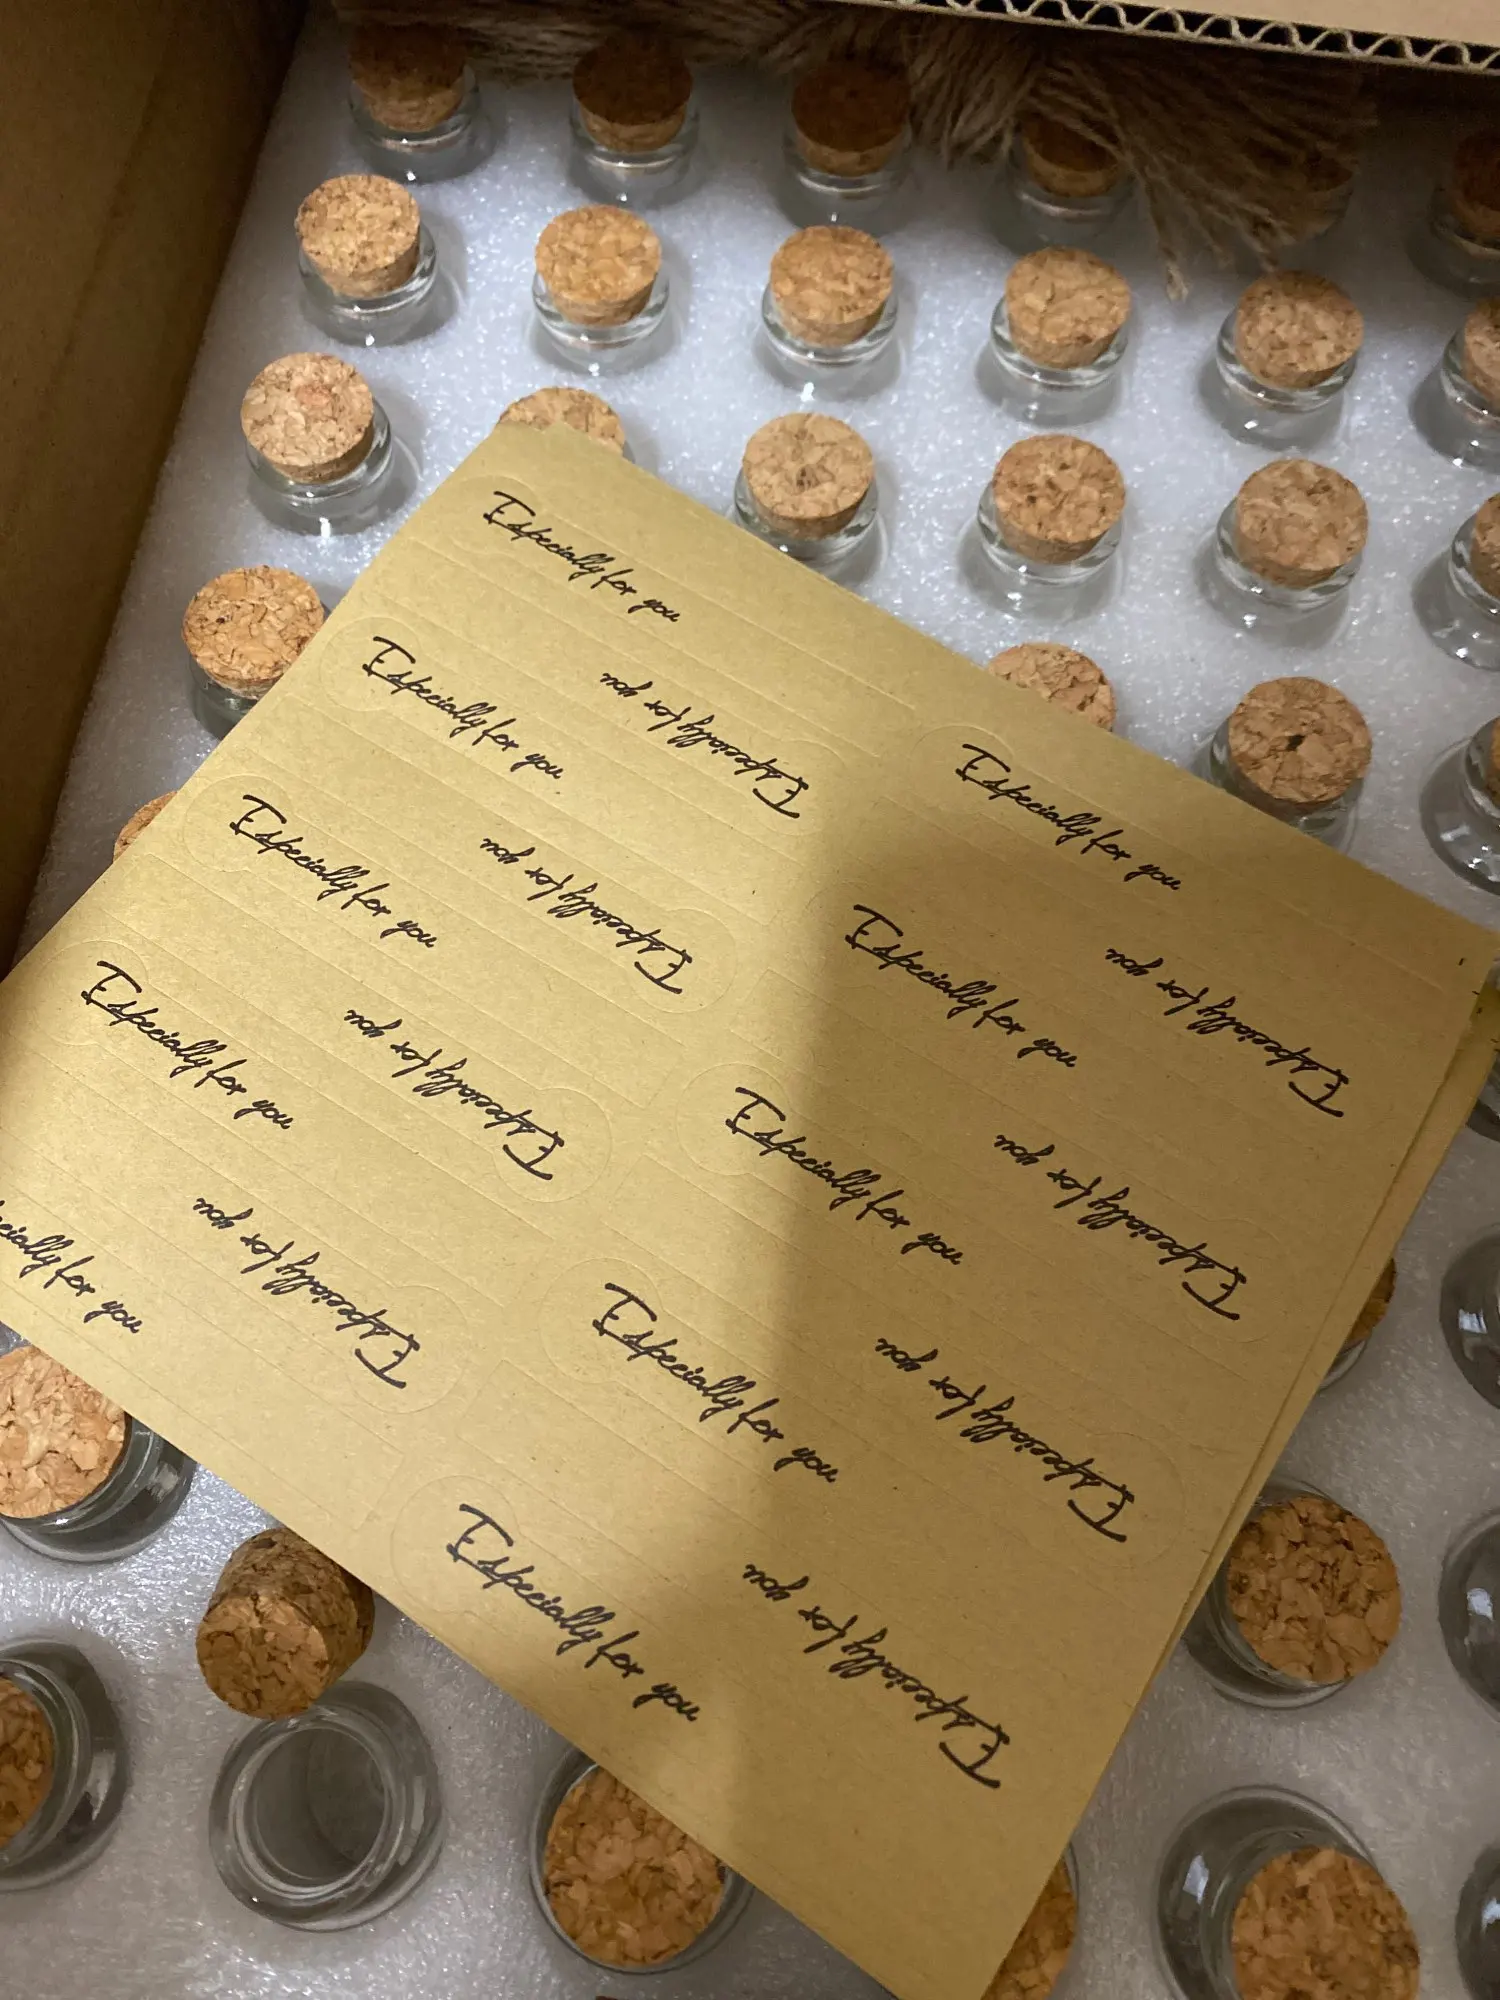 Especially for you
Especially for you
Especially for you
Especially for you
Especially for you
Especially for you
Especially for you
Especially for you
ecially for you
Especially for you
Especially for you
Especially for you
Especially for you
Especially for you
Especially for you
Especially for you
Especially for you
Especially for you